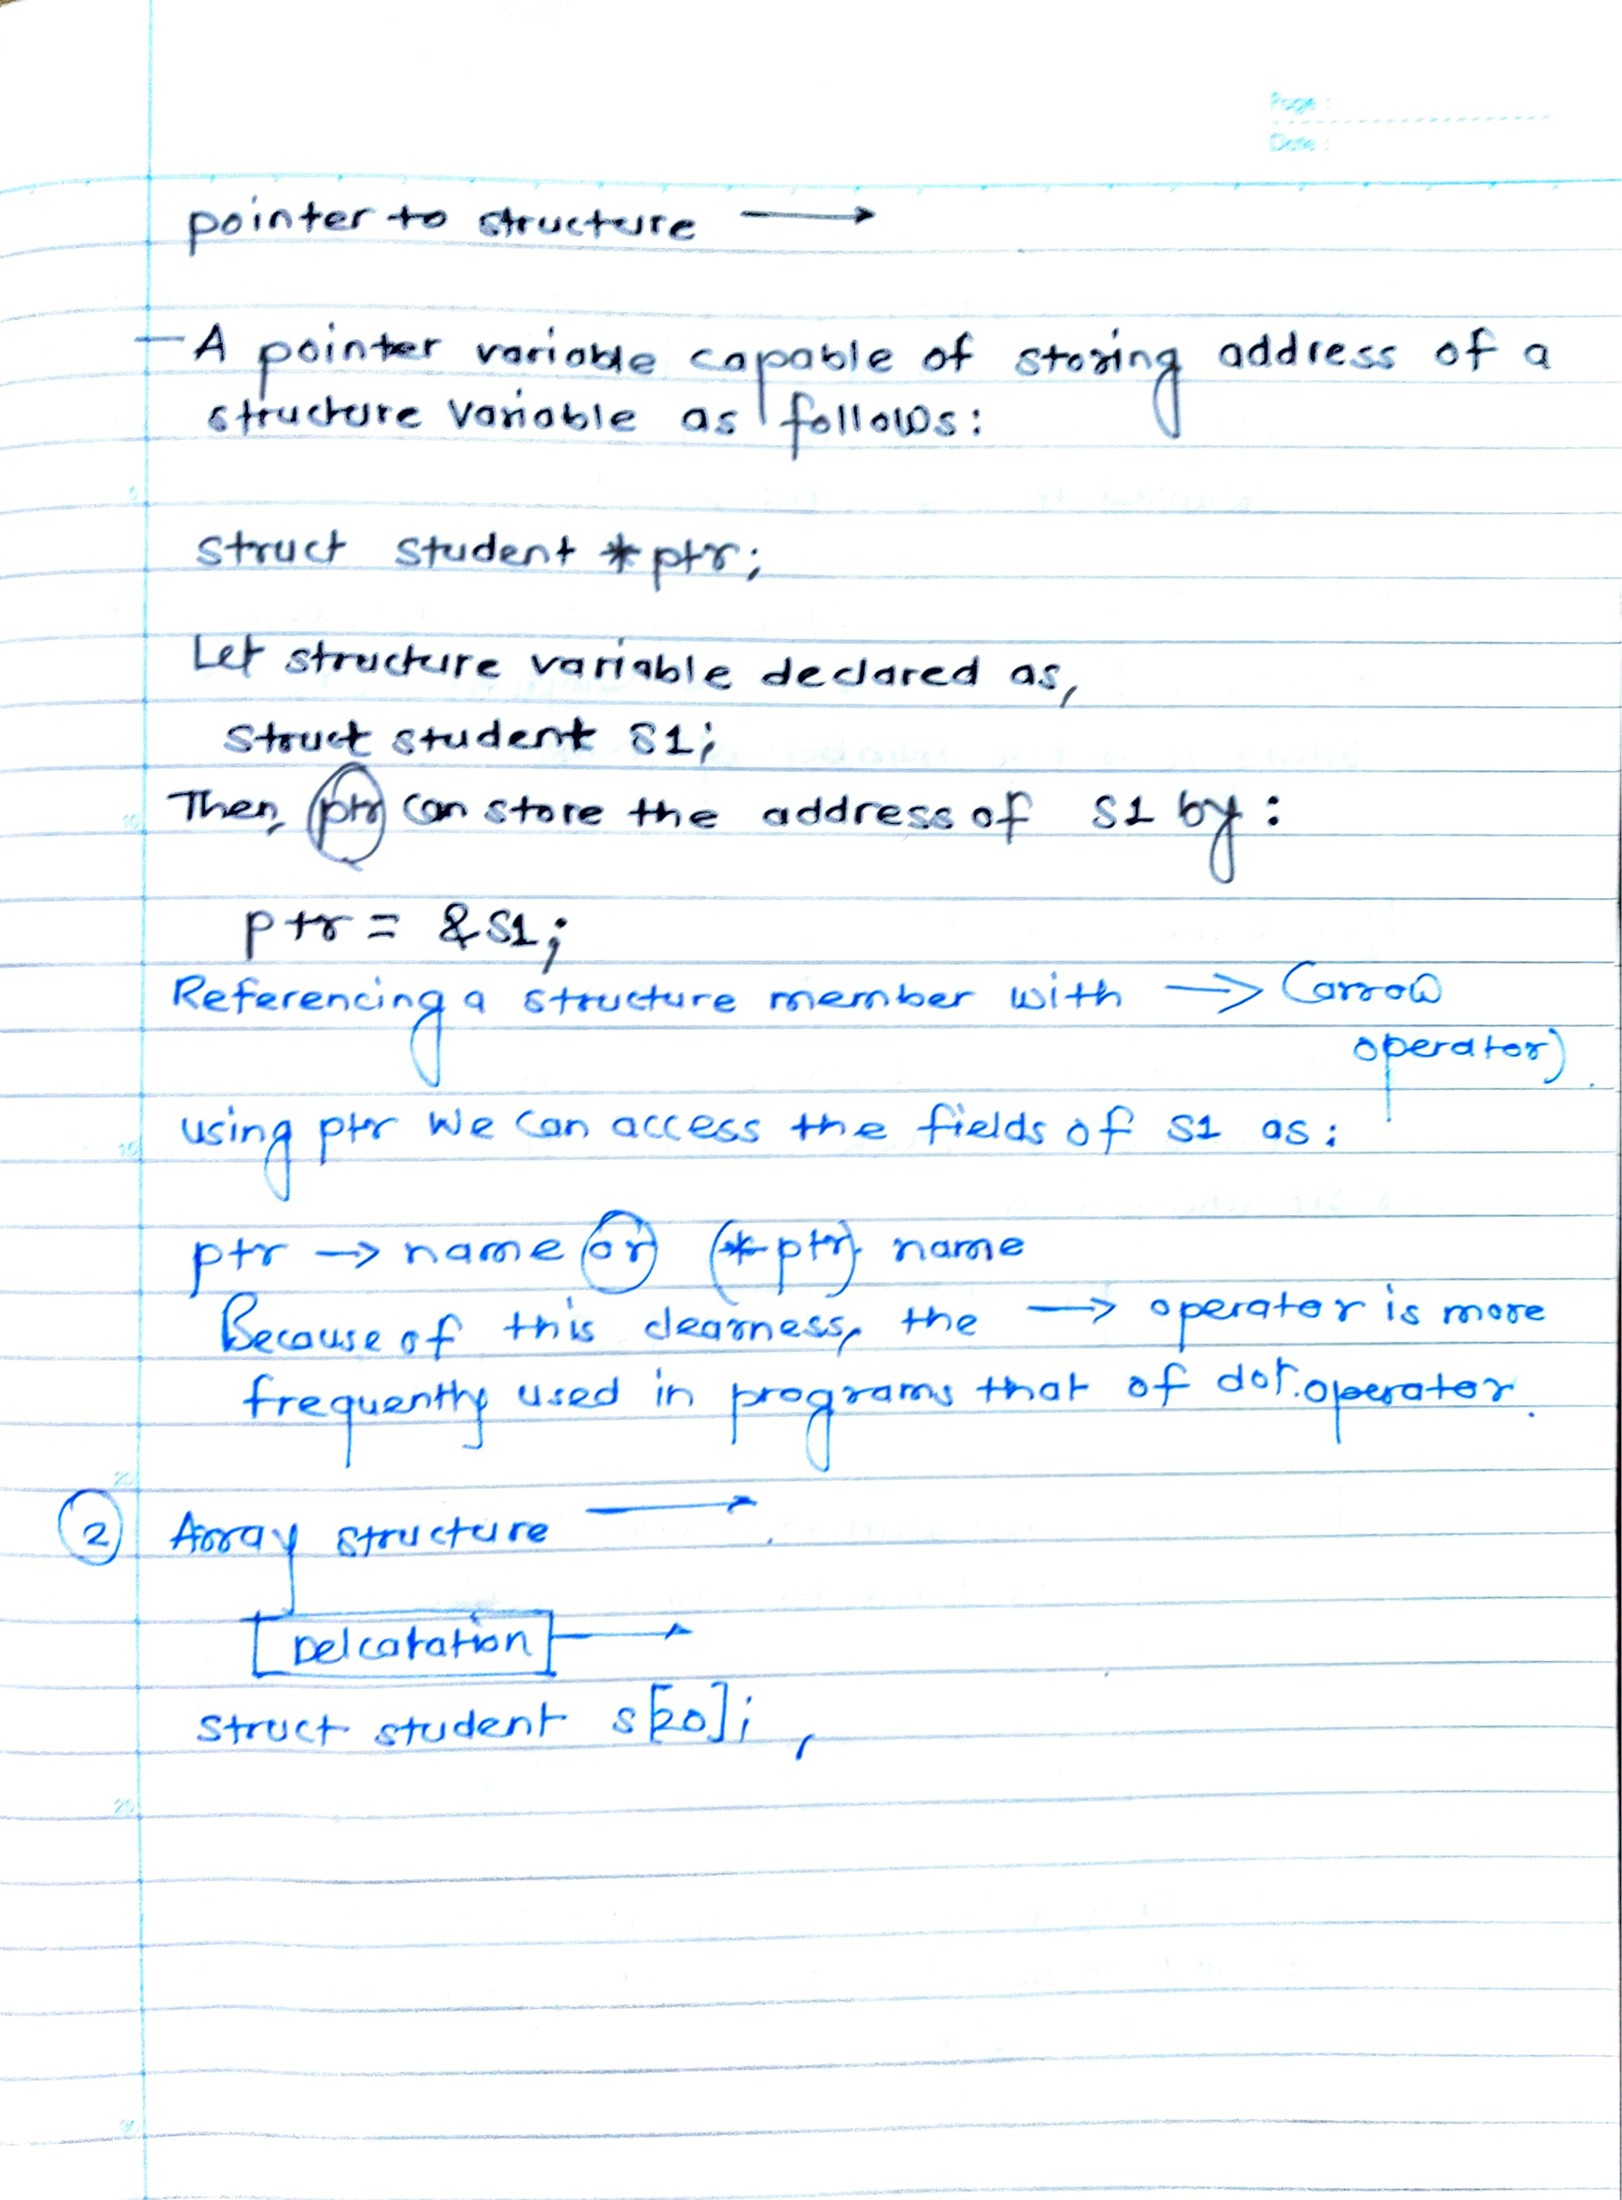 Page :
Date :
pointer to structure →
— A pointer variable capable of storing address of a
structure variable as follows:
struct student *ptr;
Let structure variable declared as,
struct student S1;
Then, ptr can store the address of S1 by :
ptr = &S1;
Referencing a structure member with → (arrow
operator)
using ptr we can access the fields of S1 as :
ptr → name or (*ptr). name
Because of this clearness, the → operator is more
frequently used in programs that of dot.operator.
2 Array structure →
Delcatation →
struct student s[20];